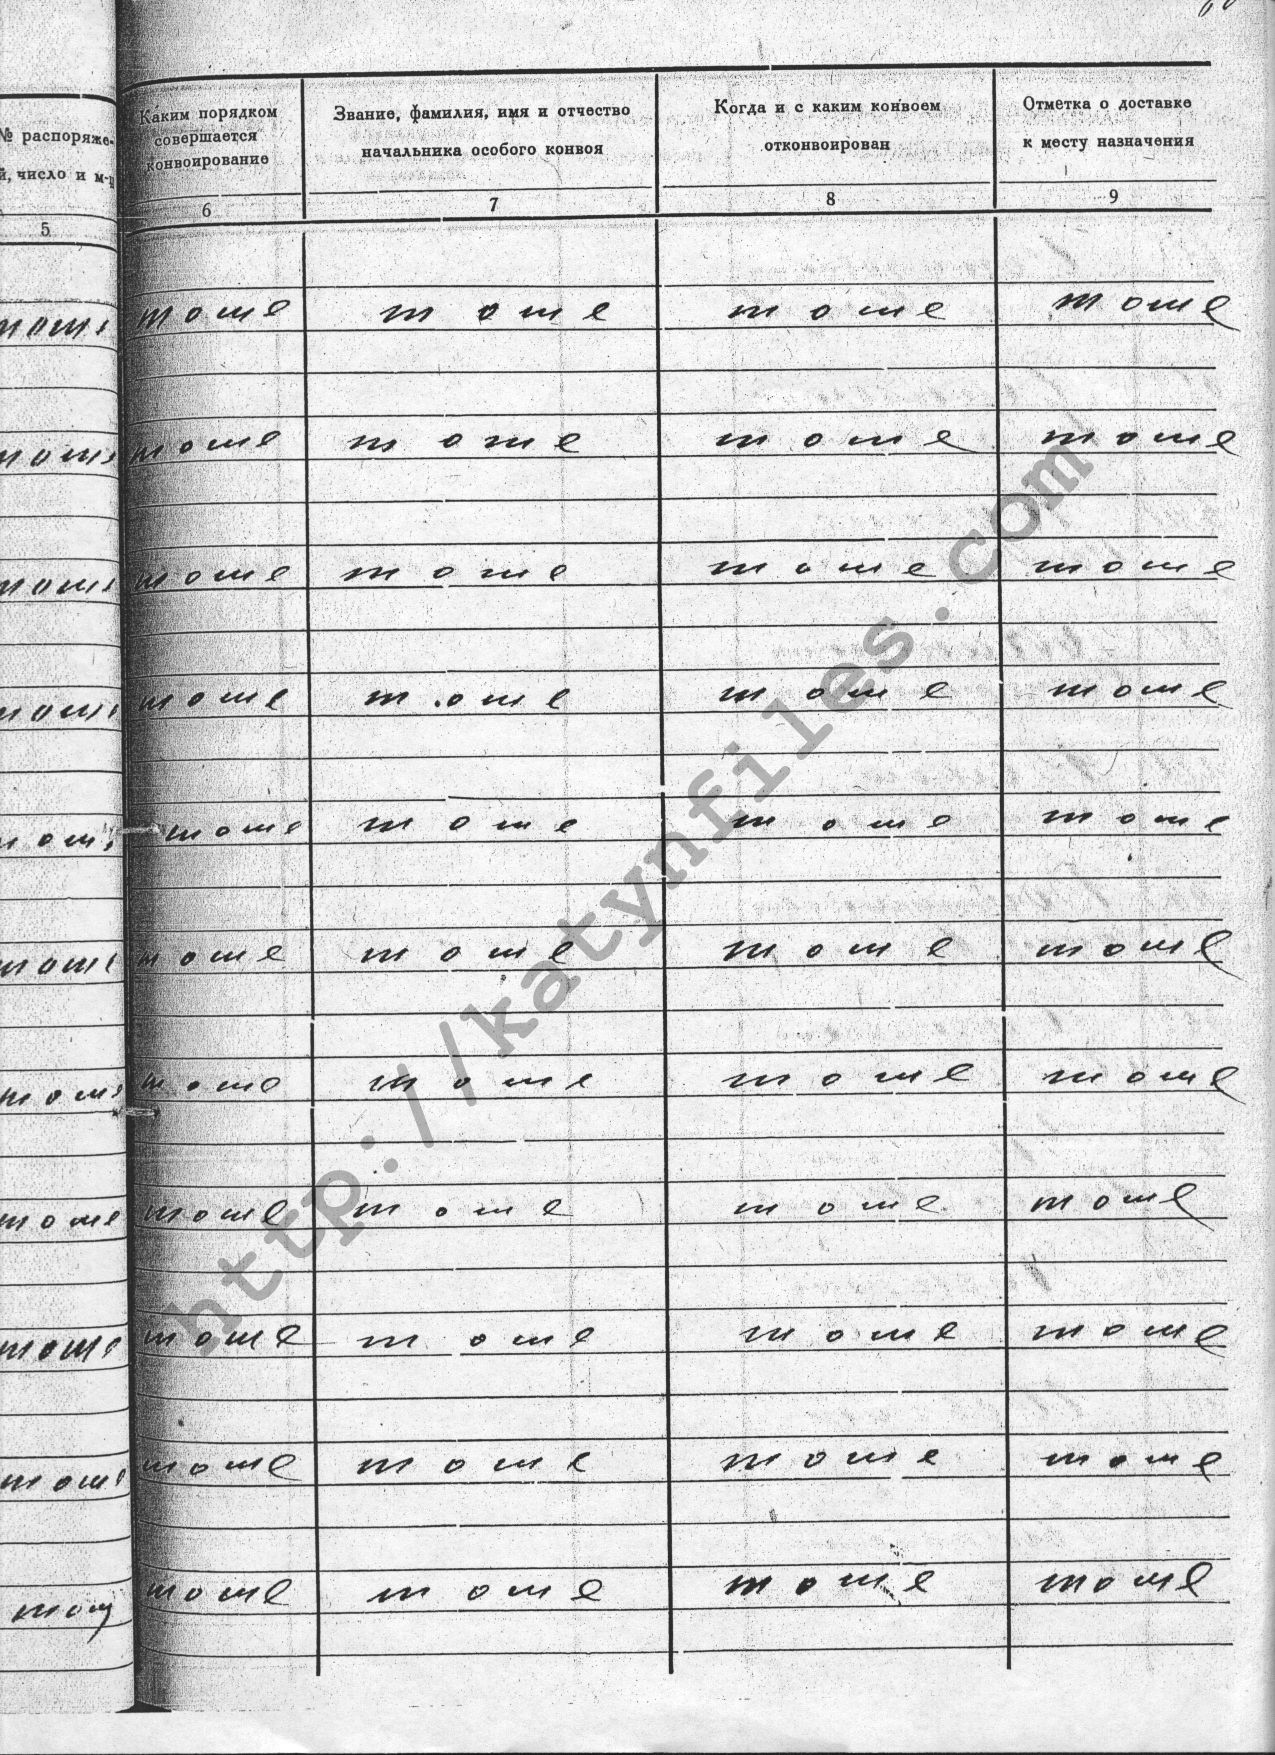 № распоряже-
й, число и м-ц
5
Каким порядком
совершается
конвоирование
6
Звание, фамилия, имя и отчество
начальника особого конвоя
7
Когда и с каким конвоем
отконвоирован
8
Отметка о доставке
к месту назначения
9
тоже тоже тоже тоже тоже
тоже тоже тоже тоже тоже
тоже тоже тоже тоже тоже
тоже тоже тоже тоже тоже
тоже тоже тоже тоже тоже
тоже тоже тоже тоже тоже
тоже тоже тоже тоже тоже
тоже тоже тоже тоже тоже
тоже тоже тоже тоже тоже
тоже тоже тоже тоже тоже
тоже тоже тоже тоже
http://katynfiles.com